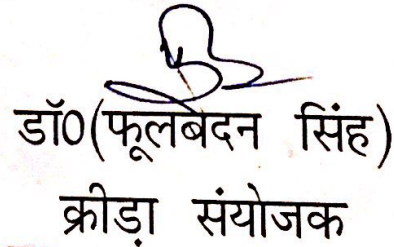 डॉ0(फूलबदन सिंह)
क्रीड़ा संयोजक